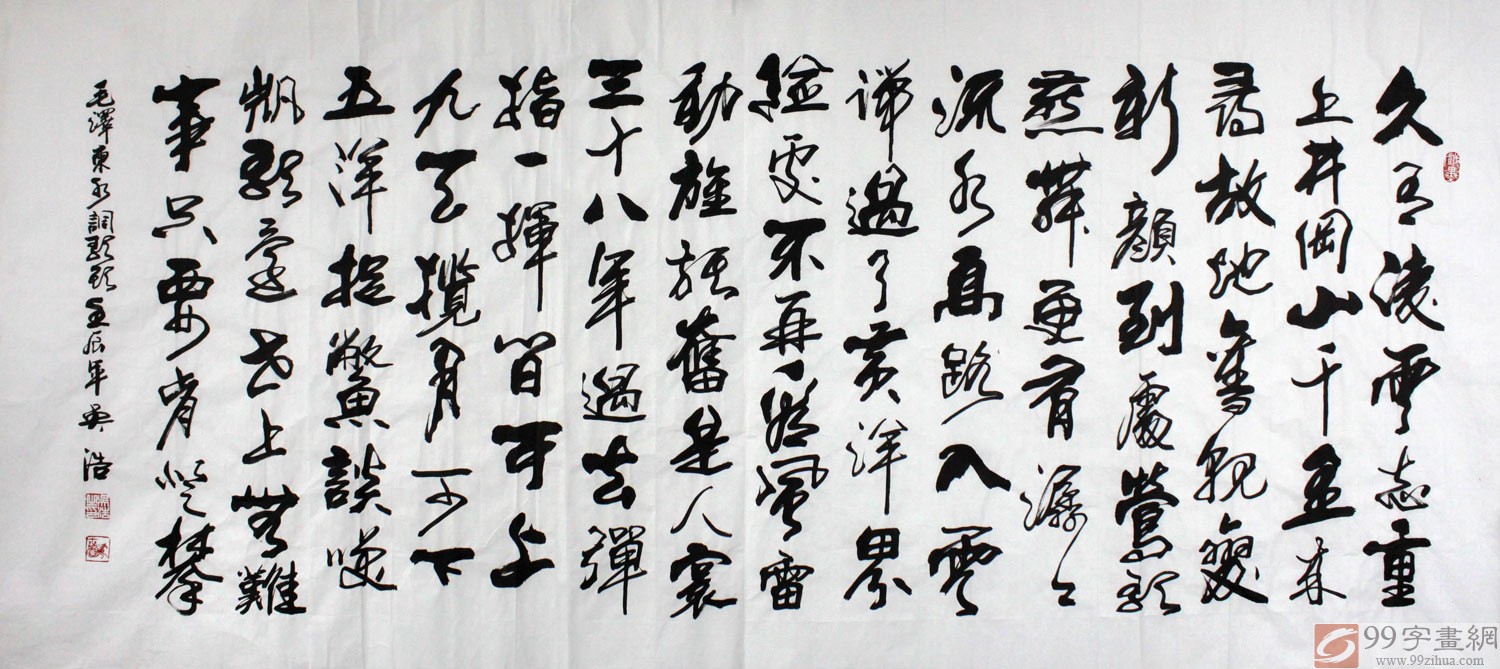 久有凌雲志重
上井岡山千里來
尋故地舊貌變
新顏到處鶯歌
燕舞更有潺々
流水高路入雲
端過了黃洋界
險處不再看風雷
動旌旗奮是人寰
三十八年過去彈
指一揮間可上
九天攬月可下
五洋捉鱉談笑
凱歌還世上無難
事只要肯登攀
毛澤東水調歌頭壬辰年吳浩
99字畫網
www.99zihua.com